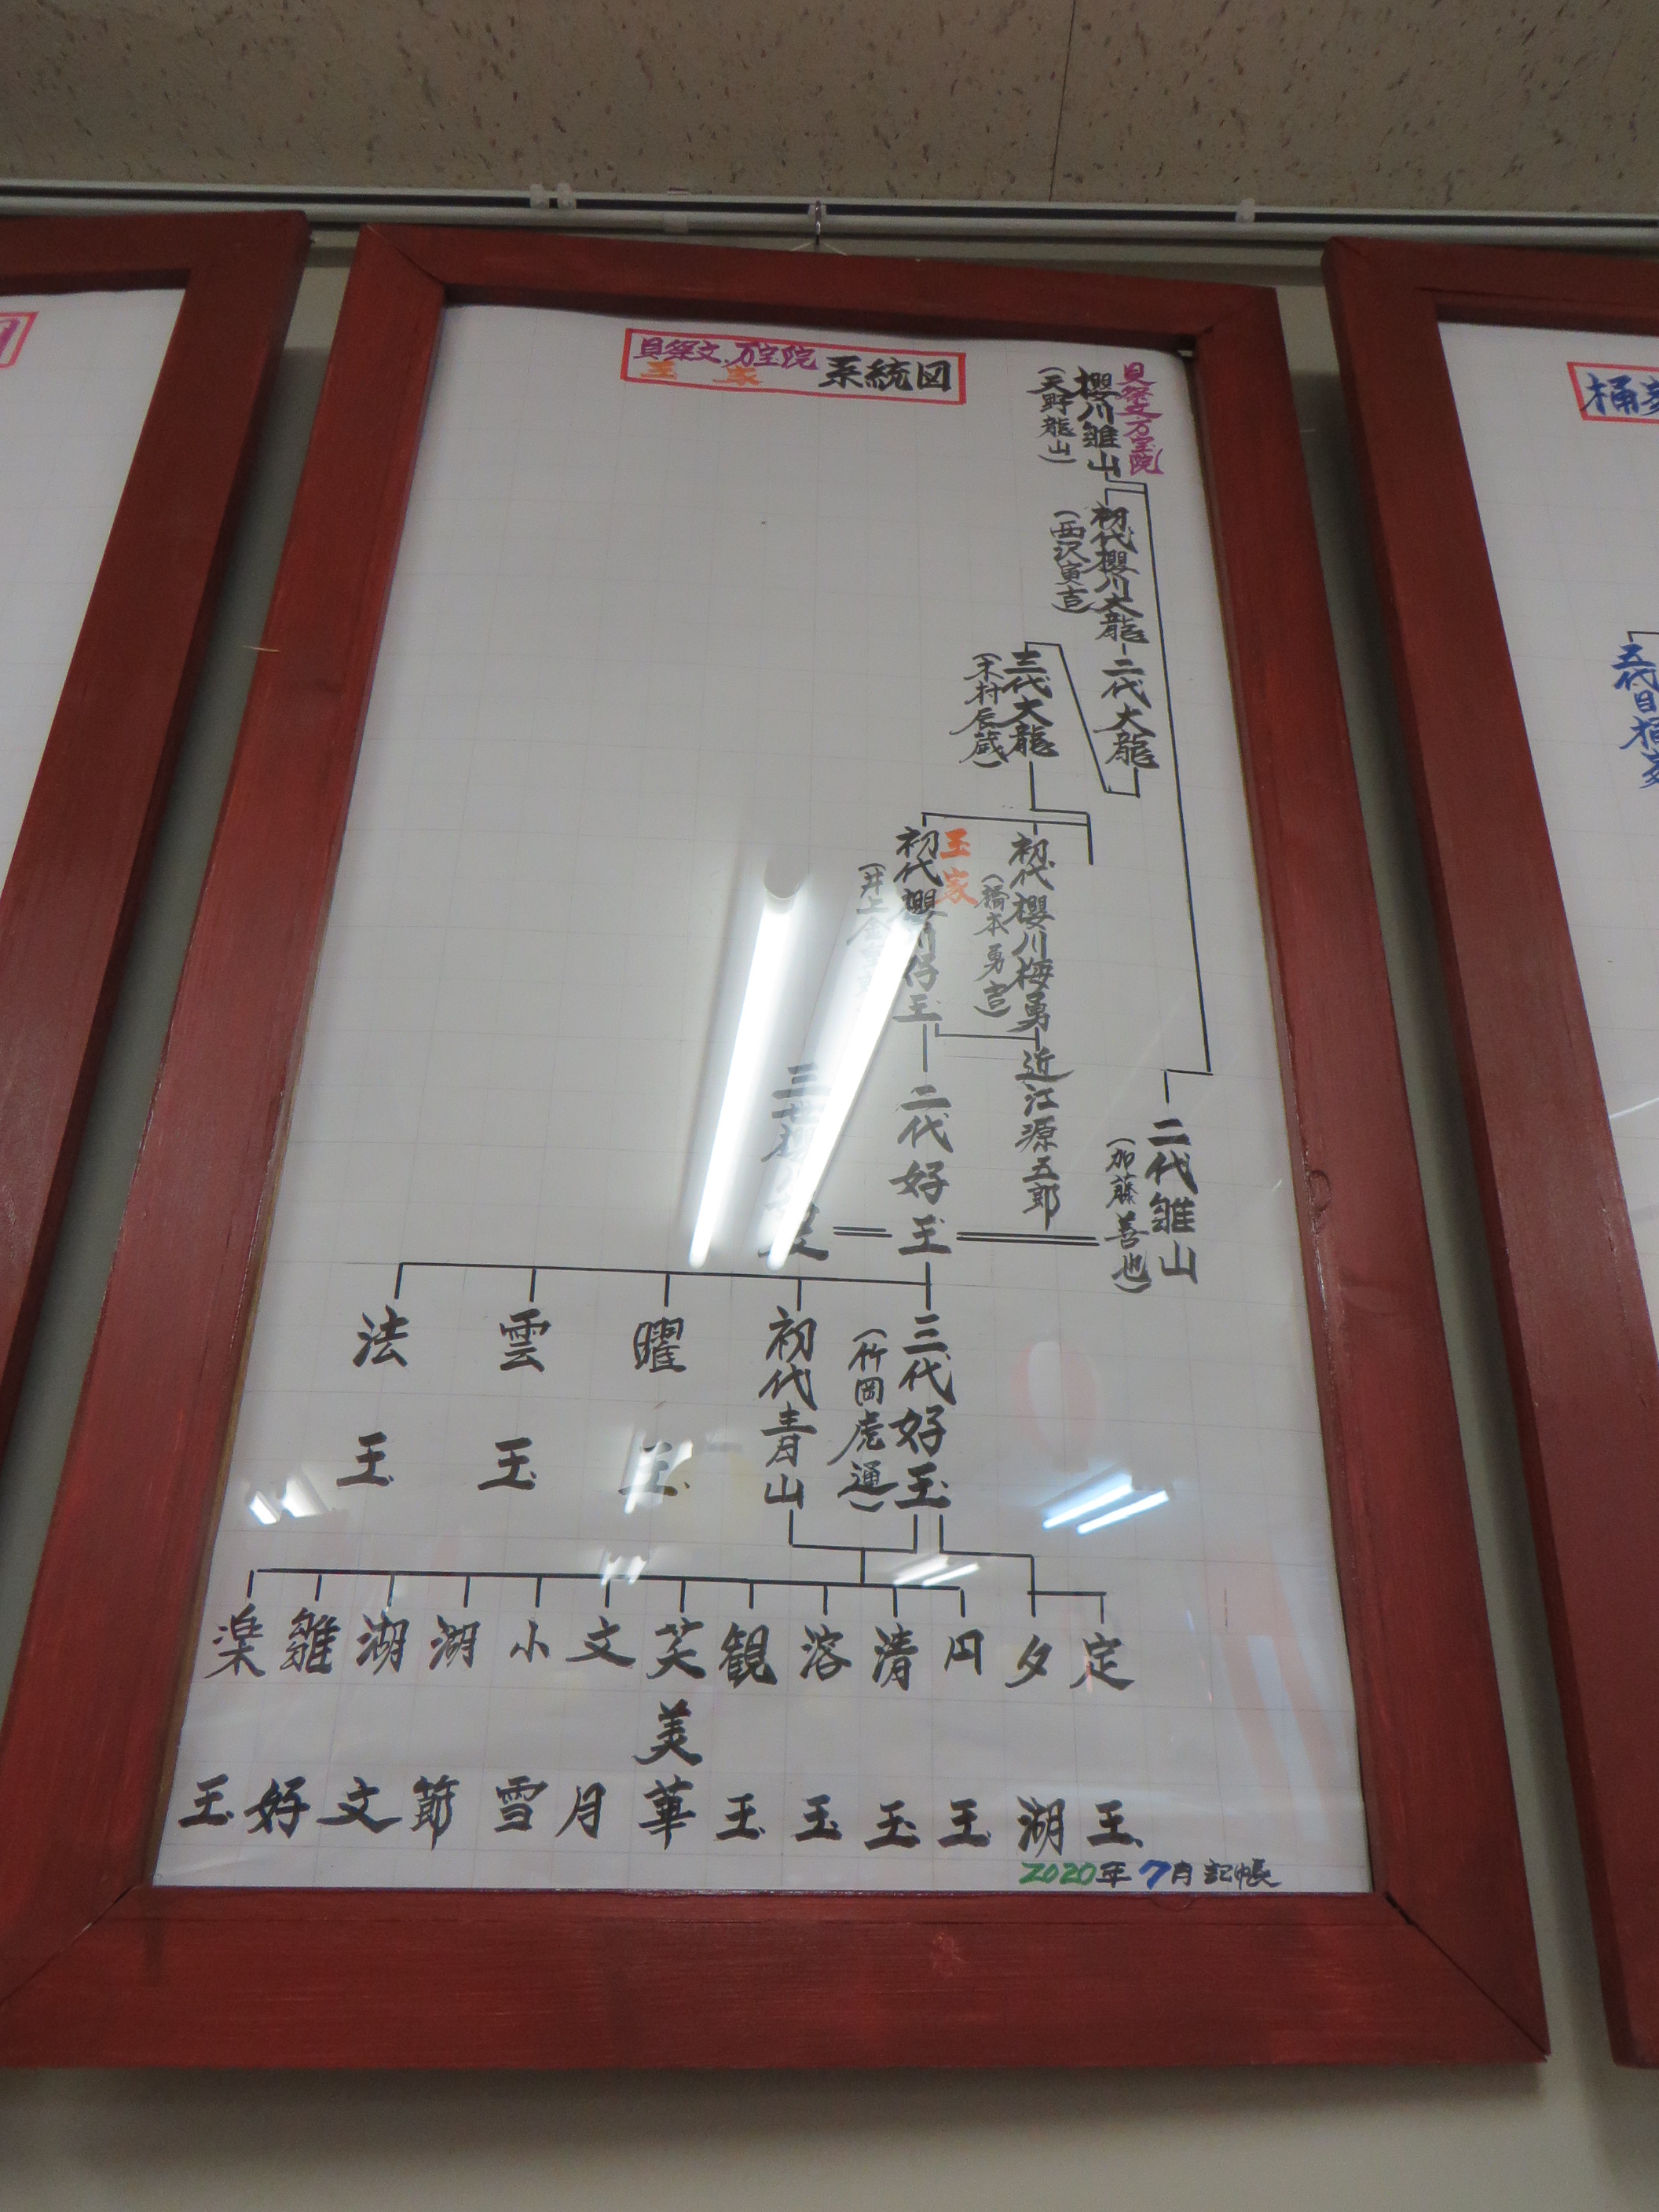 貝祭文、万宝院
玉家
系統図
貝祭文万宝院
櫻川雛山
(天野龍山)
初代櫻川大龍
(西沢寅吉)
二代大龍
三代大龍
(木村辰蔵)
初代櫻川梅勇
(橋本勇吉)
近江源五郎
玉家
初代櫻川仔玉
(井上金
二代雛山
(加藤善也)
二代好玉
三世櫻川
三代好玉
(竹岡虎通)
初代青山
曜玉
雲玉
法玉
定玉
夕湖
円玉
清玉
溶玉
観玉
笑美華
文月
小雪
湖節
湖文
雛好
楽玉
2020年7月記帳
桶
五代目桶